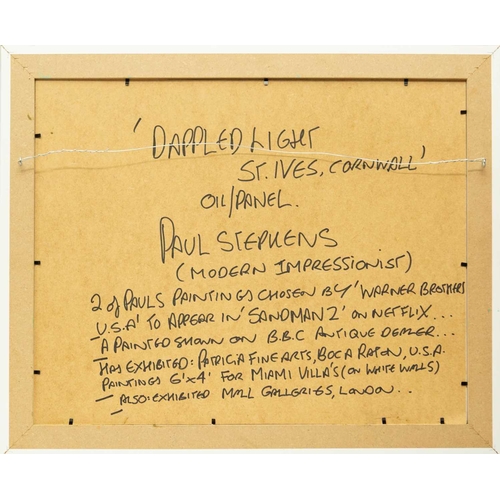 'DAPPLED LIGHT
ST. IVES, CORNWALL'
OIL/PANEL.
PAUL STEPHENS
(MODERN IMPRESSIONIST)
2 of PAULS PAINTINGS CHOSEN BY 'WARNER BROTHERS
U.S.A' TO APPEAR IN 'SANDMAN 2' ON NETFLIX...
- A PAINTED SHOWN ON B.B.C ANTIQUE DEALER...
- HAS EXHIBITED: PATRICIA FINE ARTS, BOCA RATON, U.S.A.
PAINTINGS 6'x4' FOR MIAMI VILLA'S (ON WHITE WALLS)
- ALSO: EXHIBITED MALL GALLERIES, LONDON..